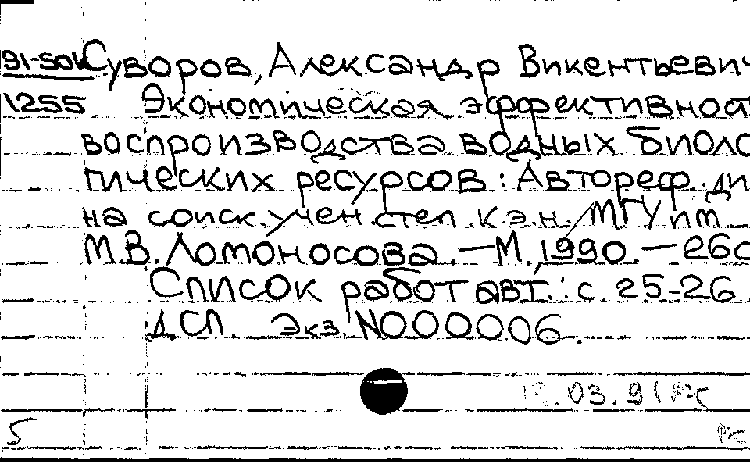 91-501 Суворов, Александр Викентьевич
1255 Экономическая эффективност
воспроизводства водных биоло
гических ресурсов: Автореф. ди
на соиск. учен. степ. к.э.н. / МГУ им.
М.В. Ломоносова. — М., 1990. — 26с
Список работ авт.: с. 25-26
ДСП. Экз. N000006.
.03.91
5